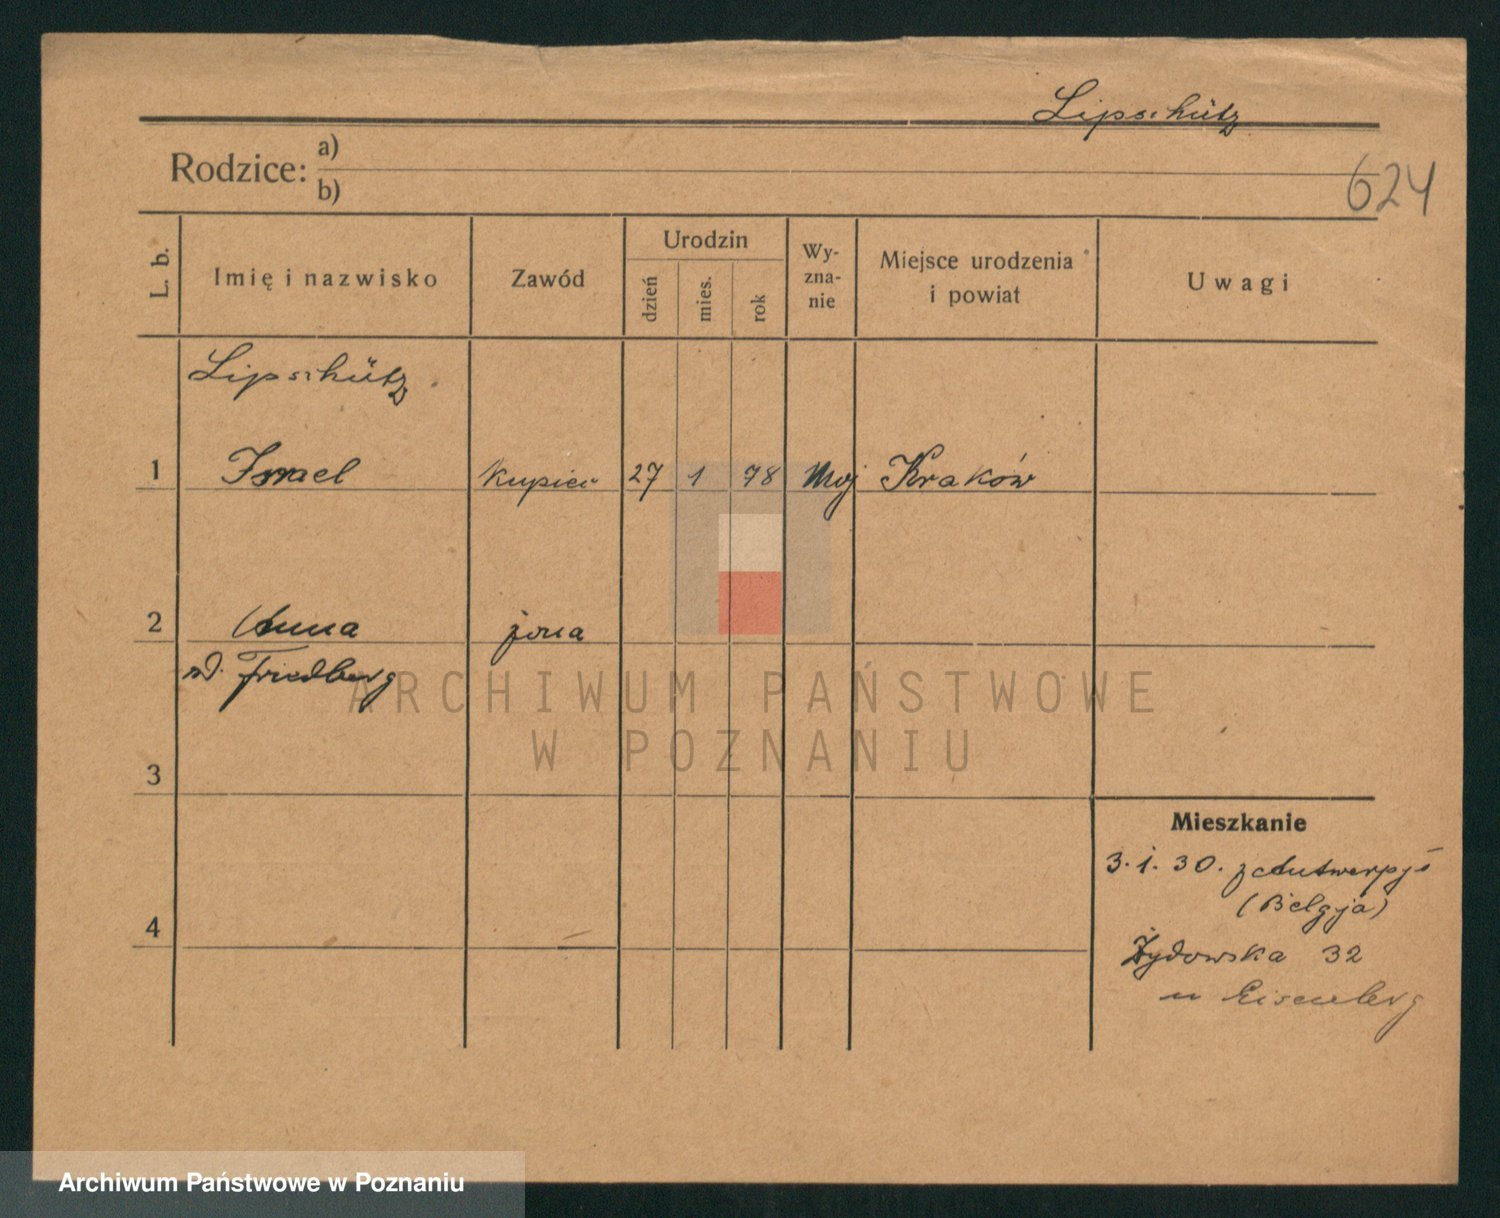 Lipschütz
624
Rodzice: a)
b)
L. b.
Imię i nazwisko
Zawód
Urodzin
dzień
mies.
rok
Wy-
zna-
nie
Miejsce urodzenia
i powiat
Uwagi
Lipschütz
1 Israel kupiec 27 1 78 Moj Kraków
2 Anna żona
Friedberg
3
4
Mieszkanie
3.1.30. z Antwerpji
(Belgja)
Żydowska 32
u Eisenberg
ARCHIWUM PAŃSTWOWE
W POZNANIU
Archiwum Państwowe w Poznaniu